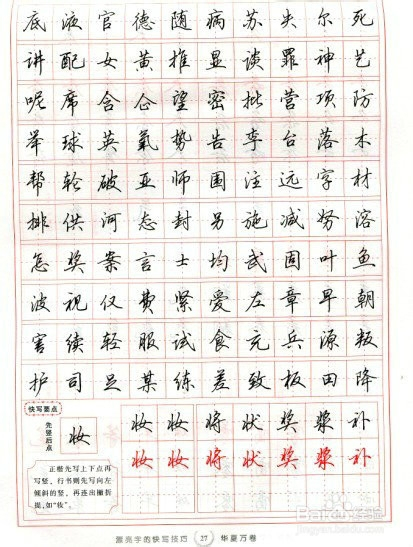 底液官德随病苏失尔死
讲配女黄推显谈罪神艺
呢席含企望密批营项防
举球英氧势告李台落木
帮轮破亚师围注远字材
排供河态封另施减努溶
怎奖案言士均武固叶鱼
波视仅费紧爱左章早朝
害续轻服试食充兵源叛
护司足某练差致板田降
快写要点
先竖后点
妆
正楷先写上下点再写竖,行书则先写向左倾斜的竖,再连出撇折提,如"妆"。
妆妆将状奖浆补
妆妆将状奖浆补
漂亮字的快写技巧 27 华夏万卷